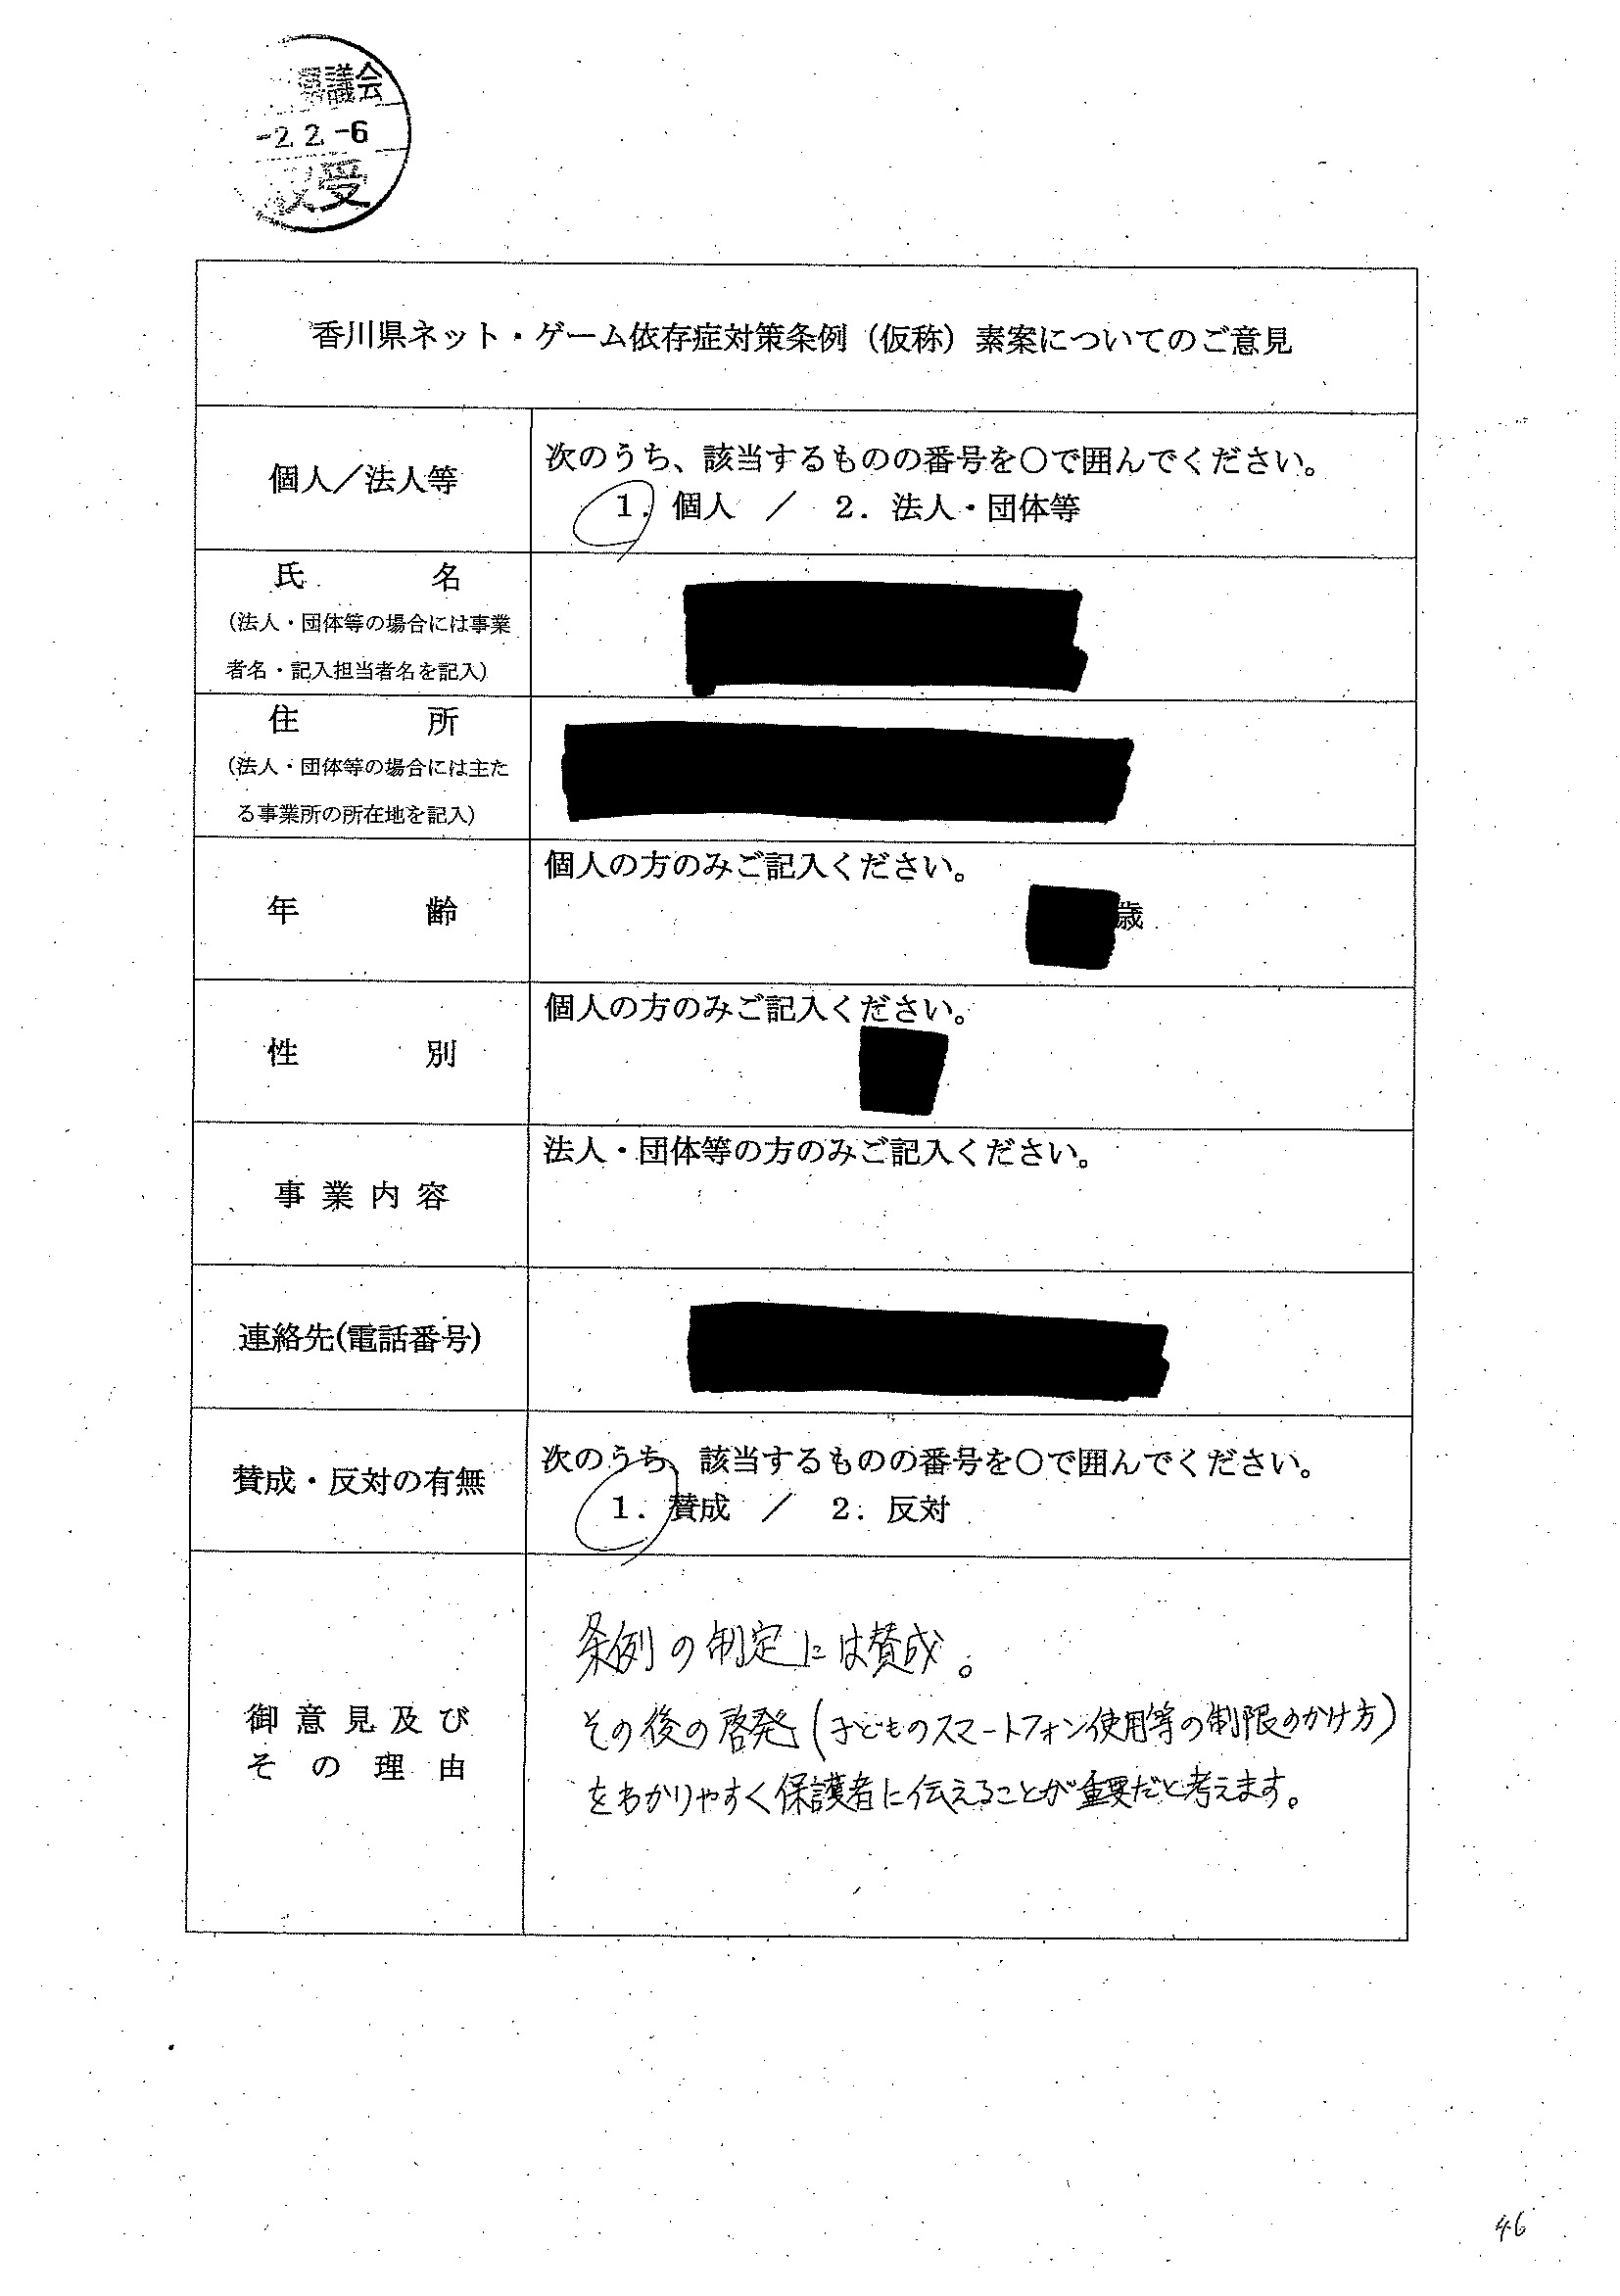 県議会
-2.2.-6
収受
香川県ネット・ゲーム依存症対策条例（仮称）素案についてのご意見
個人／法人等
次のうち、該当するものの番号を○で囲んでください。
1．個人　／　2．法人・団体等
氏　名
（法人・団体等の場合には事業
者名・記入担当者名を記入）
住　所
（法人・団体等の場合には主た
る事業所の所在地を記入）
年　齢
個人の方のみご記入ください。
歳
性　別
個人の方のみご記入ください。
事業内容
法人・団体等の方のみご記入ください。
連絡先(電話番号)
賛成・反対の有無
次のうち、該当するものの番号を○で囲んでください。
1．賛成　／　2．反対
御意見及び
その理由
条例の制定には賛成。
その後の啓発（子どものスマートフォン使用等の制限のかけ方）
をわかりやすく保護者に伝えることが重要だと考えます。
46